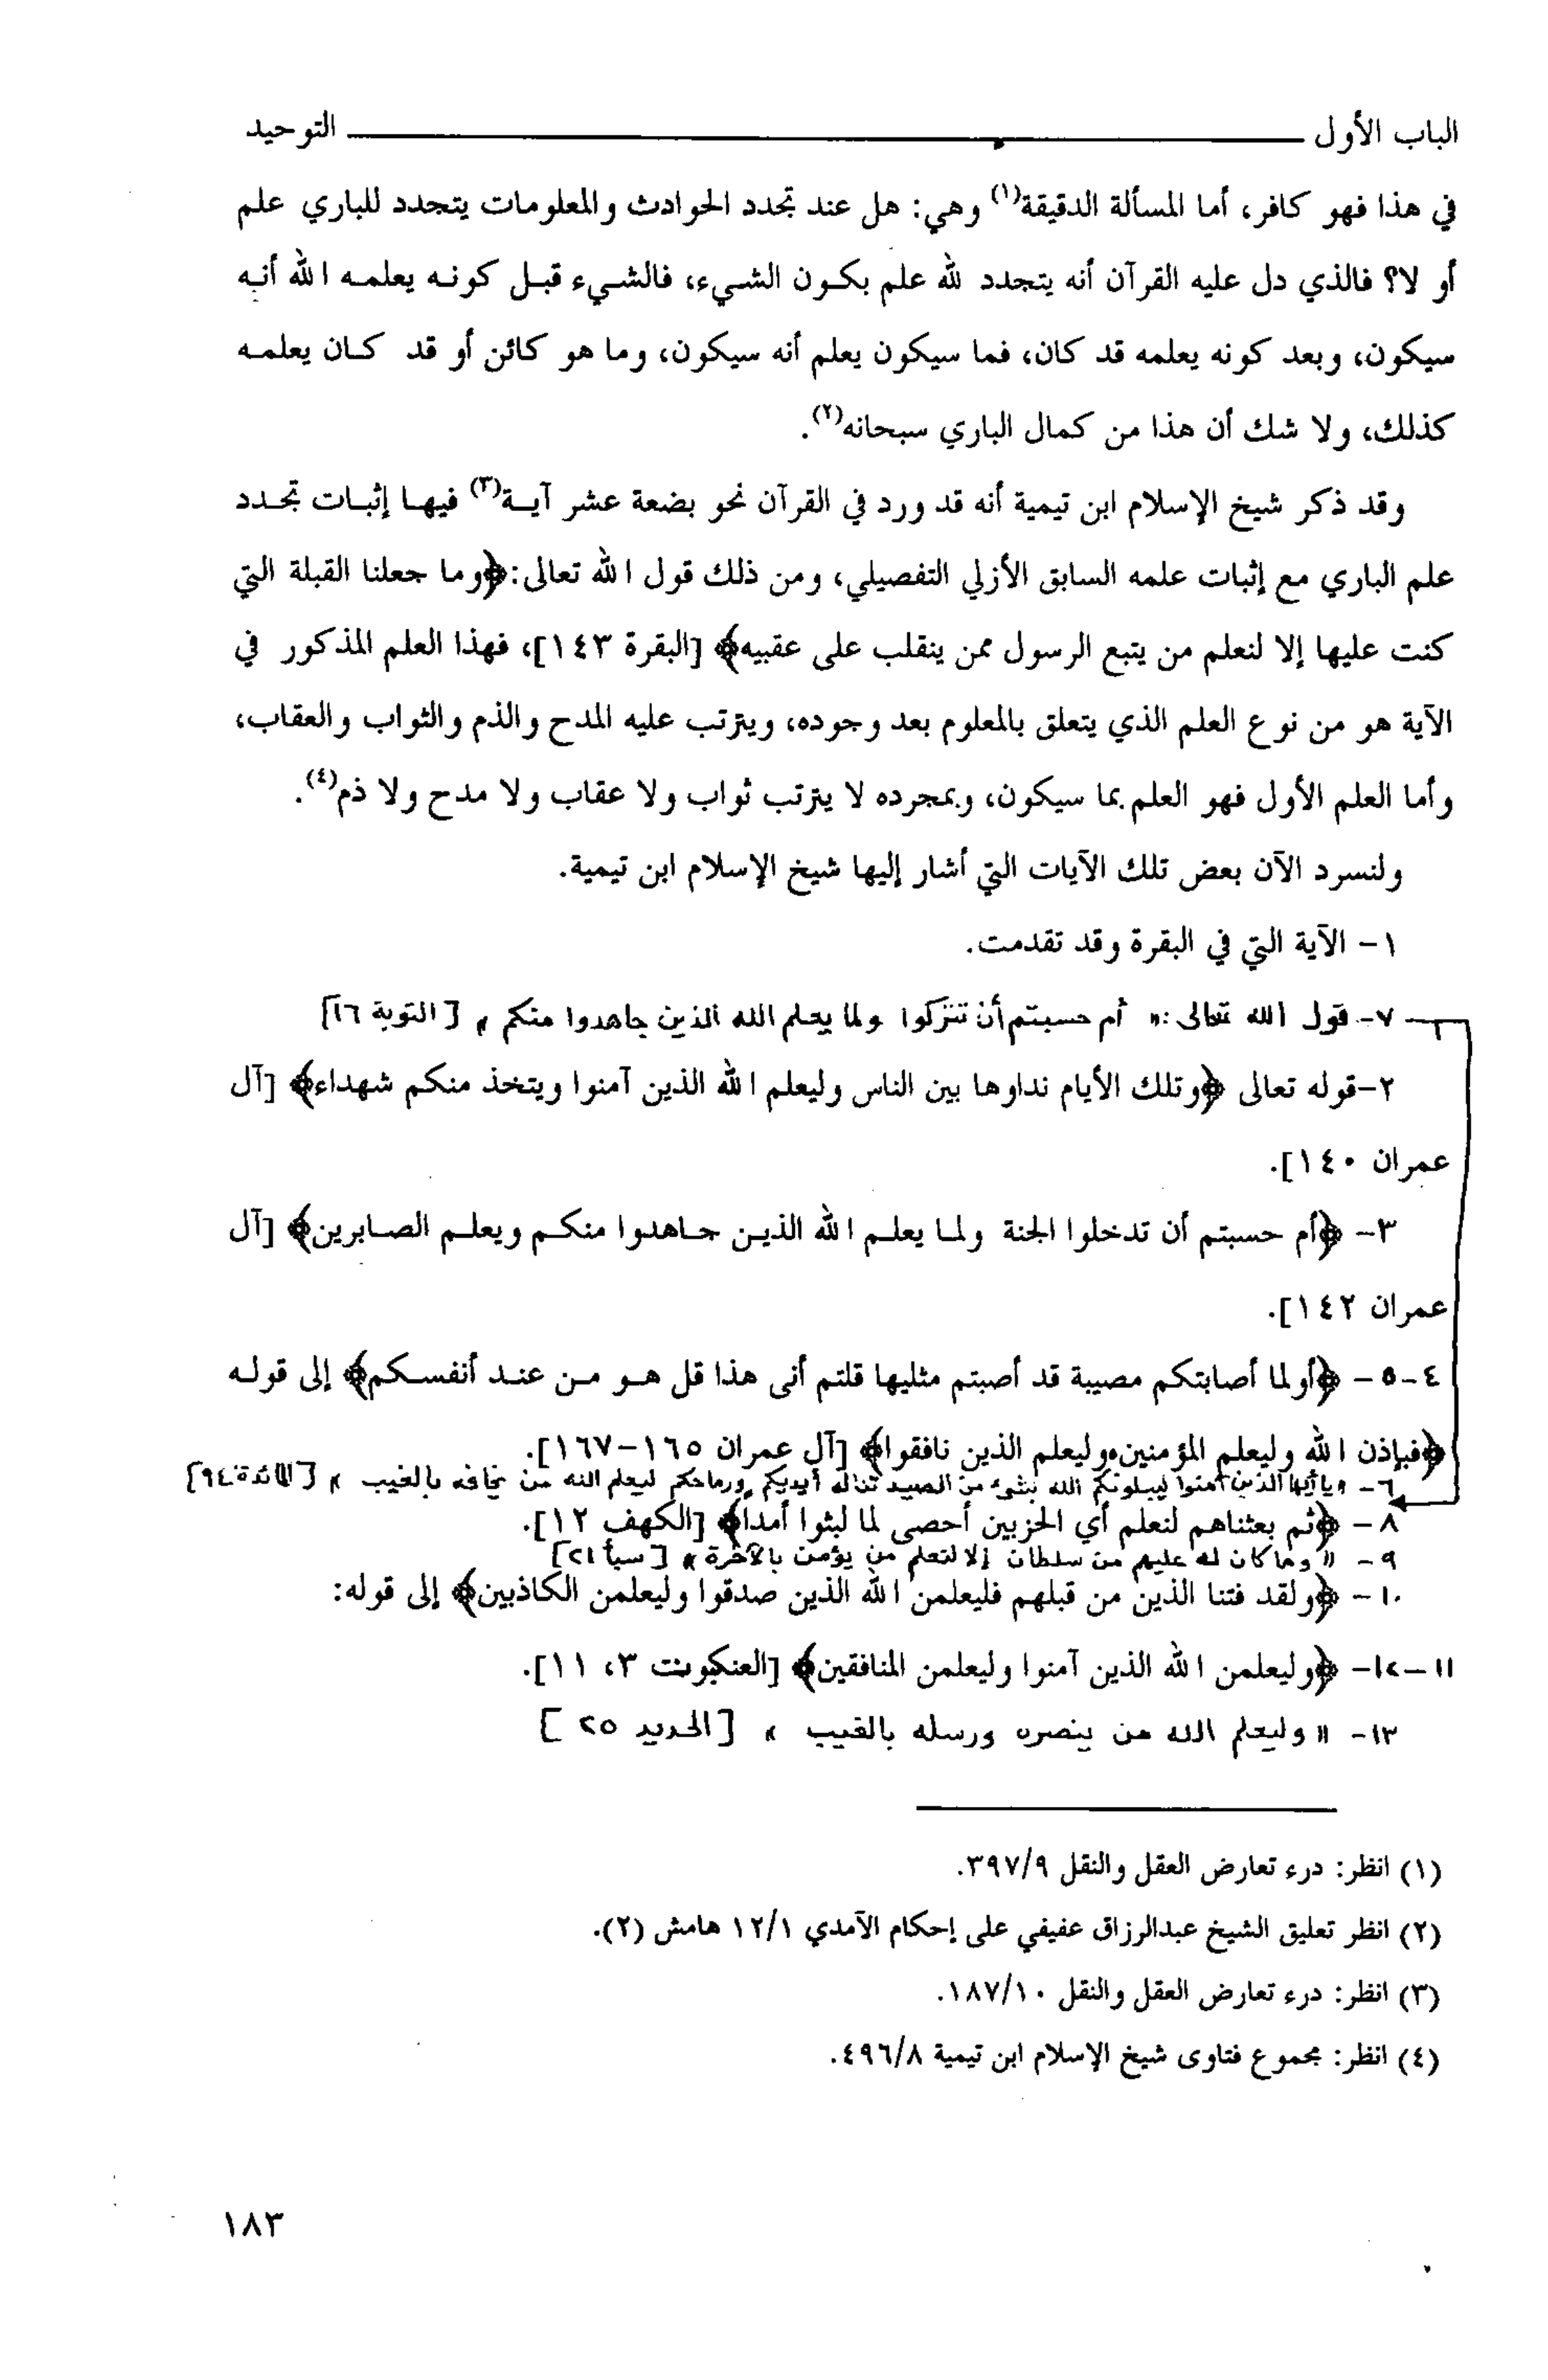 الباب الأول التوحيد
في هذا فهو كافر، أما المسألة الدقيقة(١) وهي: هل عند تجدد الحوادث والمعلومات يتجدد للباري علم
أو لا؟ فالذي دل عليه القرآن أنه يتجدد لله علم بكون الشيء، فالشيء قبل كونه يعلمه الله أنه
سيكون، وبعد كونه يعلمه قد كان، فما سيكون يعلم أنه سيكون، وما هو كائن أو قد كان يعلمه
كذلك، ولا شك أن هذا من كمال الباري سبحانه(٢).
وقد ذكر شيخ الإسلام ابن تيمية أنه قد ورد في القرآن نحو بضعة عشر آية(٣) فيها إثبات تجدد
علم الباري مع إثبات علمه السابق الأزلي التفصيلي، ومن ذلك قول الله تعالى:﴿وما جعلنا القبلة التي
كنت عليها إلا لنعلم من يتبع الرسول ممن ينقلب على عقبيه﴾ [البقرة ١٤٣]، فهذا العلم المذكور في
الآية هو من نوع العلم الذي يتعلق بالمعلوم بعد وجوده، ويترتب عليه المدح والذم والثواب والعقاب،
وأما العلم الأول فهو العلم بما سيكون، وبمجرده لا يترتب ثواب ولا عقاب ولا مدح ولا ذم(٤).
ولنسرد الآن بعض تلك الآيات التي أشار إليها شيخ الإسلام ابن تيمية.
١- الآية التي في البقرة وقد تقدمت.
٧- قول الله تعالى: « أم حسبتم أن تتركوا ولما يعلم الله الذين جاهدوا منكم » [ التوبة ١٦]
٢-قوله تعالى ﴿وتلك الأيام نداوها بين الناس وليعلم الله الذين آمنوا ويتخذ منكم شهداء﴾ [آل
عمران ١٤٠].
٣- ﴿أم حسبتم أن تدخلوا الجنة ولما يعلم الله الذين جاهدوا منكم ويعلم الصابرين﴾ [آل
عمران ١٤٢].
٤-٥- ﴿أولما أصابتكم مصيبة قد أصبتم مثليها قلتم أنى هذا قل هو من عند أنفسكم﴾ إلى قوله
﴿فبإذن الله وليعلم المؤمنين، وليعلم الذين نافقوا﴾ [آل عمران ١٦٥-١٦٧].
٦- « يا أيها الذين آمنوا ليبلونكم الله بشيء من الصيد تناله أيديكم ورماحكم ليعلم الله من يخافه بالغيب » [المائدة ٩٤]
٨- ﴿ثم بعثناهم لنعلم أي الحزبين أحصى لما لبثوا أمداً﴾ [الكهف ١٢].
٩- « وما كان له عليهم من سلطان إلا لنعلم من يؤمن بالآخرة » [سبأ ٢١]
١٠- ﴿ولقد فتنا الذين من قبلهم فليعلمن الله الذين صدقوا وليعلمن الكاذبين﴾ إلى قوله:
١١-١٢- ﴿وليعلمن الله الذين آمنوا وليعلمن المنافقين﴾ [العنكبوت ٣، ١١].
١٣- « وليعلم الله من ينصره ورسله بالغيب » [الحديد ٢٥ ]
(١) انظر: درء تعارض العقل والنقل ٣٩٧/٩.
(٢) انظر تعليق الشيخ عبدالرزاق عفيفي على إحكام الآمدي ١٢/١ هامش (٢).
(٣) انظر: درء تعارض العقل والنقل ١٨٧/١٠.
(٤) انظر: مجموع فتاوى شيخ الإسلام ابن تيمية ٤٩٦/٨.
١٨٣